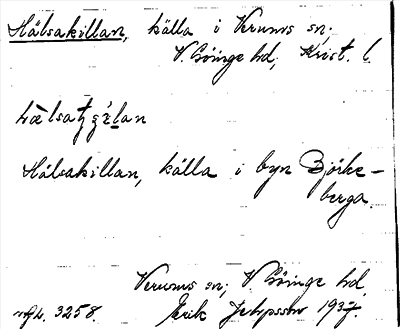 Hälsakillan, källa i Verums sn;
V. Göinge hd, Krist. l.
Hälsakillan, källa i byn Björke-
berga.
Verums sn; V. Göinge hd.
3258. Erik Jeppsson 1937.